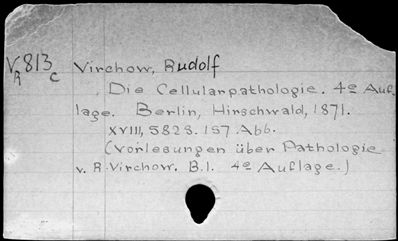 VR 813 c Virchow, Rudolf
Die Cellularpathologie. 4e Auf-
lage. Berlin, Hirschwald, 1871.
XVIII, 582 S. 157 Abb.
(Vorlesungen über Pathologie
v. R. Virchow. B.1. 4e Auflage.)